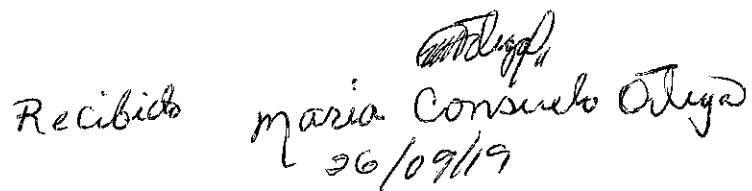 Recibido Maria Consuelo Ortega
26/09/19